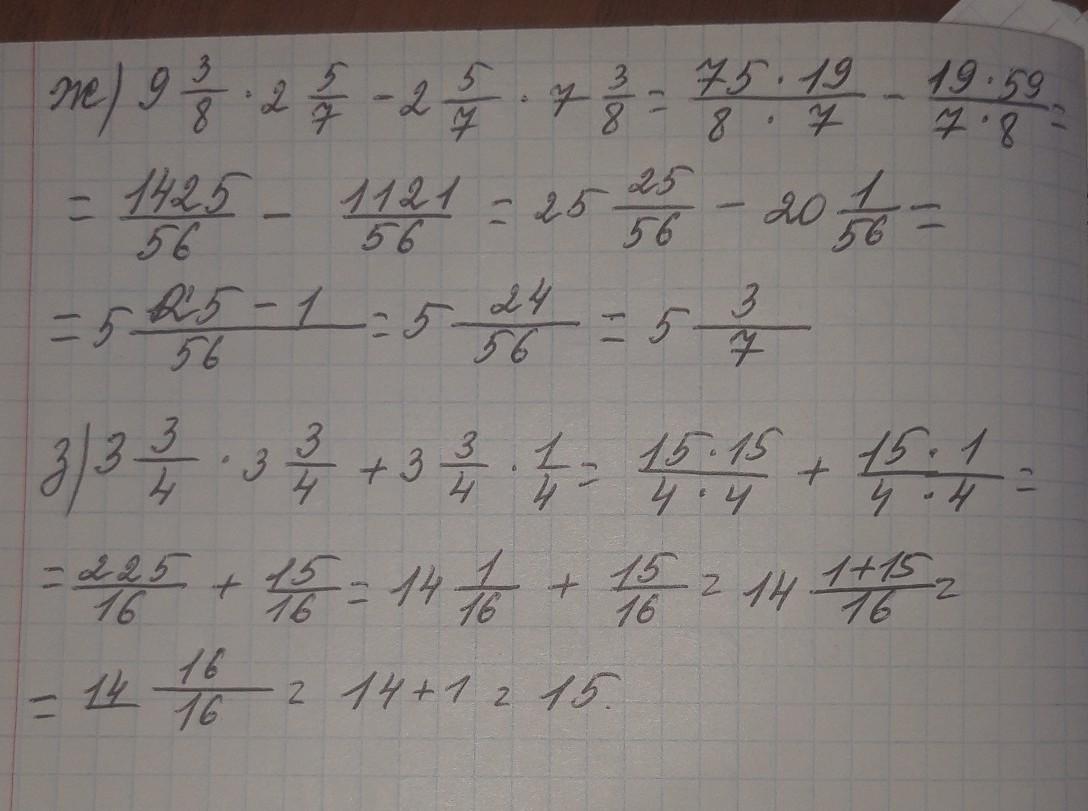 ж) 9 3/8 · 2 5/7 - 2 5/7 · 7 3/8 = 75 · 19 / 8 · 7 - 19 · 59 / 7 · 8 =
= 1425/56 - 1121/56 = 25 25/56 - 20 1/56 =
= 5 25 - 1 / 56 = 5 24/56 = 5 3/7
з) 3 3/4 · 3 3/4 + 3 3/4 · 1/4 = 15 · 15 / 4 · 4 + 15 · 1 / 4 · 4 =
= 225/16 + 15/16 = 14 1/16 + 15/16 = 14 1 + 15 / 16 =
= 14 16/16 = 14 + 1 = 15.